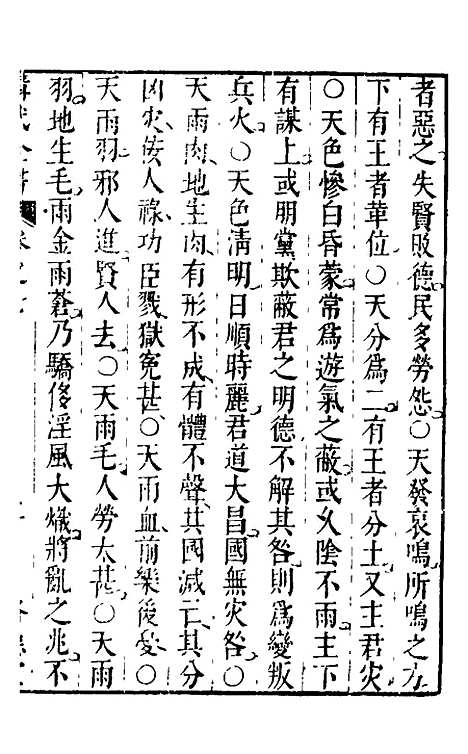 者惡之失賢敗德民多勞怨○天發哀鳴所鳴之方
下有王者革位○天分爲二有王者分土又主君灾
○天色慘白昏蒙常爲遊氣之蔽或久陰不雨主下
有謀上或朋黨欺蔽君之明德不解其咎則爲變叛
兵火○天色淸明日順時麗君道大昌國無灾咎○
天雨肉地生肉有形不成有體不聲其國减亡其分
凶灾倿人祿功臣戮獄寃甚○天雨血前樂後憂○
天雨羽邪人進賢人去○天雨毛人勞太甚○天雨
羽地生毛雨金雨蒼乃驕侈淫風大熾將亂之兆不
全書 卷之七